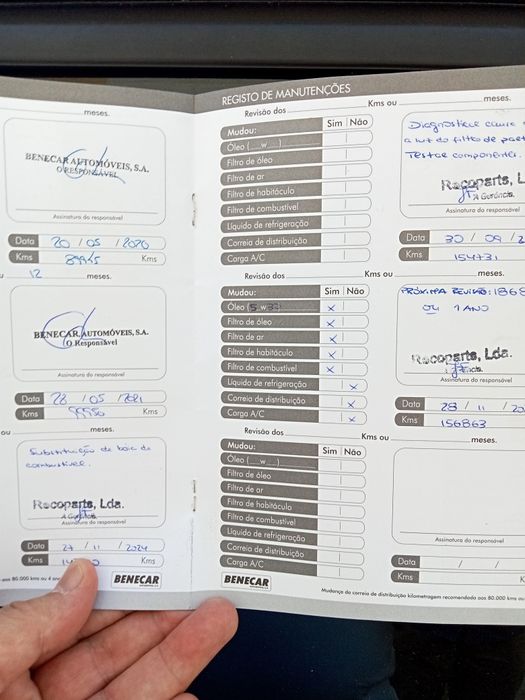 meses.
BENECAR AUTOMÓVEIS, S.A.
O RESPONSÁVEL
Assinatura do responsável
Data 20 / 05 / 2020
Kms 89945 Kms
12 meses.
BENECAR AUTOMÓVEIS, S.A.
O Responsável
Assinatura do responsável
Data 28 / 05 / 2021
Kms Kms
ou meses.
Substituição de boia de
combustível.
Recoparts, Lda.
A Gerência
Assinatura do responsável
Data 27 / 11 / 2024
Kms Kms
aos 80.000 kms ou 4 BENECAR
REGISTO DE MANUTENÇÕES
Revisão dos Kms ou meses.
Mudou: Sim Não
Óleo ( w )
Filtro de óleo
Filtro de ar
Filtro de habitáculo
Filtro de combustível
Líquido de refrigeração
Correia de distribuição
Carga A/C
Diagnostico
a luz do filtro de
Testar componentes.
Recoparts, L
A Gerência
Assinatura do responsável
Data 30 / 09 / 2
Kms 154731
Revisão dos Kms ou meses.
Mudou: Sim Não
Óleo (5 w 30) x
Filtro de óleo x
Filtro de ar x
Filtro de habitáculo x
Filtro de combustível x
Líquido de refrigeração x
Correia de distribuição x
Carga A/C x
PRÓXIMA REVISÃO: 1868
OU 1 ANO
Recoparts, Lda.
Assinatura do responsável
Data 28 / 11 / 20
Kms 156863
Revisão dos Kms ou meses.
Mudou: Sim Não
Óleo ( w )
Filtro de óleo
Filtro de ar
Filtro de habitáculo
Filtro de combustível
Líquido de refrigeração
Correia de distribuição
Carga A/C
Assinatura do responsável
Data / /
Kms Km
BENECAR
Mudança da correia de distribuição kilometragem recomendada aos 80.000 kms ou